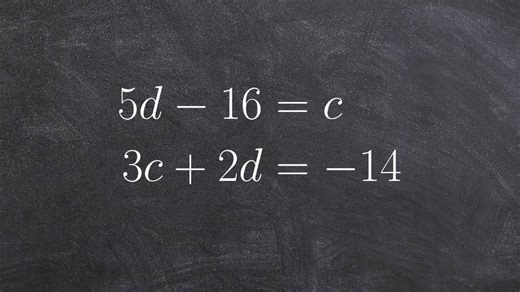 5d − 16 = c
3c + 2d = −14